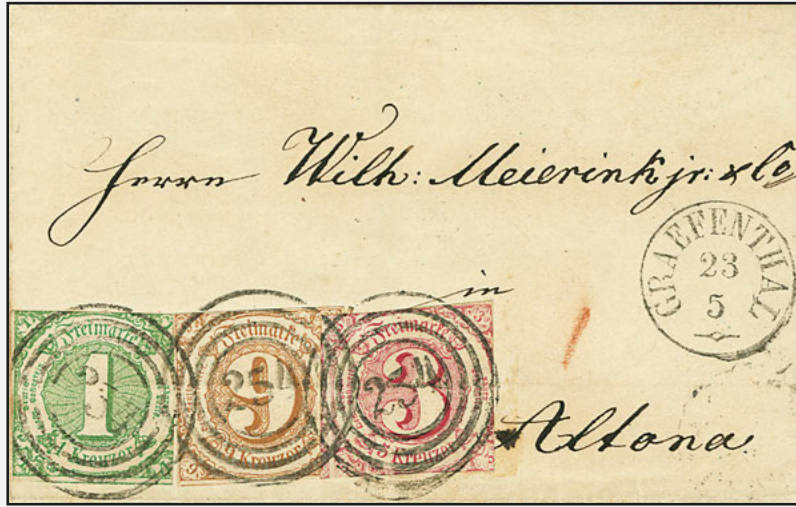 Herrn Wilh: Meierink jr: & Co
GRAEFENTHAL
23
5
in
Freimarke
1
Kreuzer
Freimarke
9
9 Kreuzer
Freimarke
3
3 Kreuzer
Altona